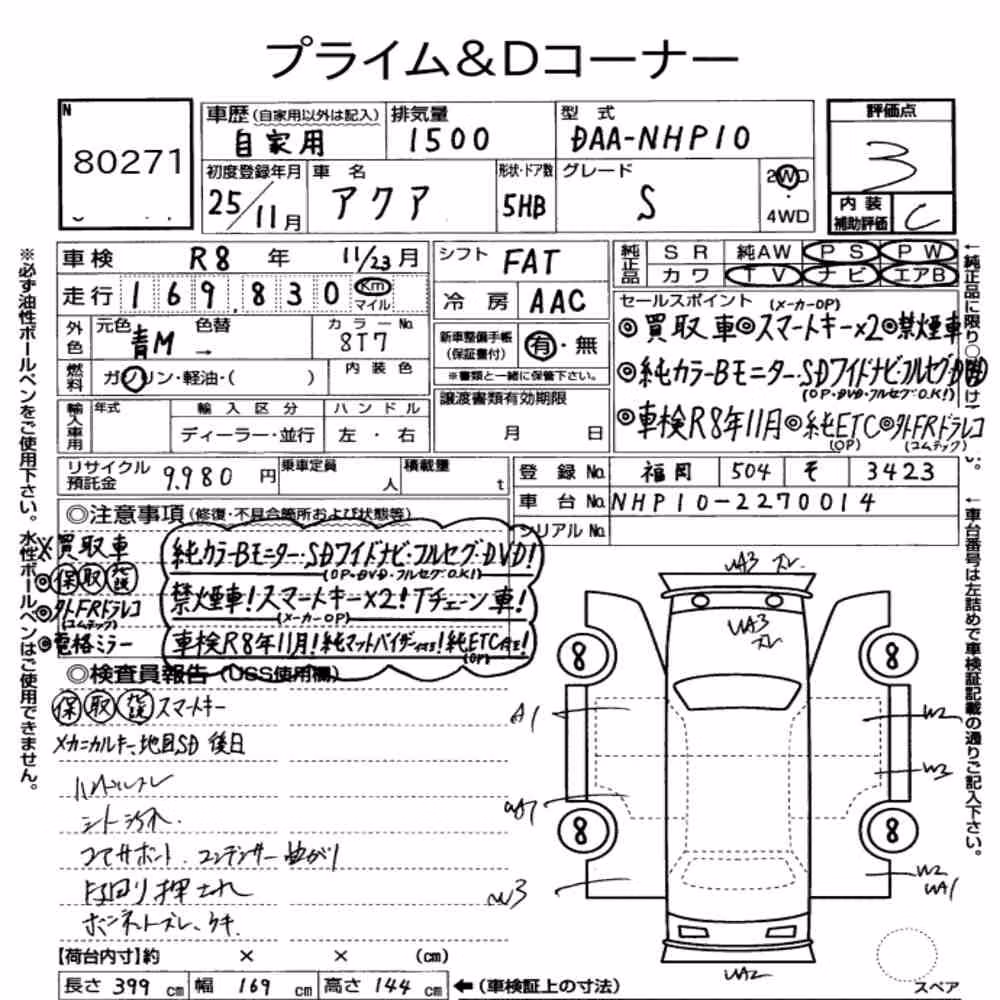 プライム&Dコーナー
N
80271
車歴(自家用以外は記入)
自家用
排気量
1500
型 式
DAA-NHP10
評価点
3
初度登録年月
25/11月
車 名
アクア
形状・ドア数
5HB
グレード
S
2WD
4WD
内 装
補助評価
C
車検 R8 年 11/23月
走行 169,830 Km マイル
外色
元色 青M
色替 →
カラーNo.
8T7
燃料
ガソリン・軽油・( )
内 装 色
輸入車用
年式
輸 入 区 分
ディーラー・並行
ハ ン ド ル
左 ・ 右
シフト FAT
冷 房 AAC
新車整備手帳
(保証書付)
有・無
※書類と一緒に保管下さい。
譲渡書類有効期限
月 日
純正品
S R 純AW P S P W
カ ワ T V ナ ビ エアB
セールスポイント (メーカーOP)
◎買取車◎スマートキー×2◎禁煙車
◎純カラーBモニター・SDワイドナビ・フルセグDVD
(OP・DVD・フルセグO.K!)
◎車検R8年11月◎純ETC◎外FRドラレコ
(OP) (コムテック)
リサイクル
預託金
9,980 円
乗車定員
人
積載量
t
登 録 No. 福岡 504 そ 3423
車 台 No. NHP10-2270014
シリアルNo.
◎注意事項(修復・不具合箇所および状態等)
×買取車
◎保取説
◎外FRドラレコ
(コムテック)
◎電格ミラー
純カラーBモニター・SDワイドナビ・フルセグDVD!
(OP・DVD・フルセグO.K!)
禁煙車!スマートキー×2!Tチェーン車!
(メーカーOP)
車検R8年11月!純マットバイザー付き!純ETC付き!
(OP)
◎検査員報告(USS使用欄)
保取説スマートキー
メカニカルキー、地図SD 後日
ハンドルスレ
シート汚れ.
コアサポート.コンデンサー曲がり
下回り押され
ボンネットズレ、キキ.
UA3 スレ
UA3
スレ
8
8
8
8
A1
W2
W3
W3
W2
UA1
UA2
スペア
【荷台内寸】約 × × (cm)
長さ 399 cm 幅 169 cm 高さ 144 cm ←(車検証上の寸法)
※必ず油性ボールペンをご使用下さい。水性ボールペンはご使用できません。
←純正品に限り○
け下さい。
←車台番号は左詰めで車検証記載の通りご記入下さい。